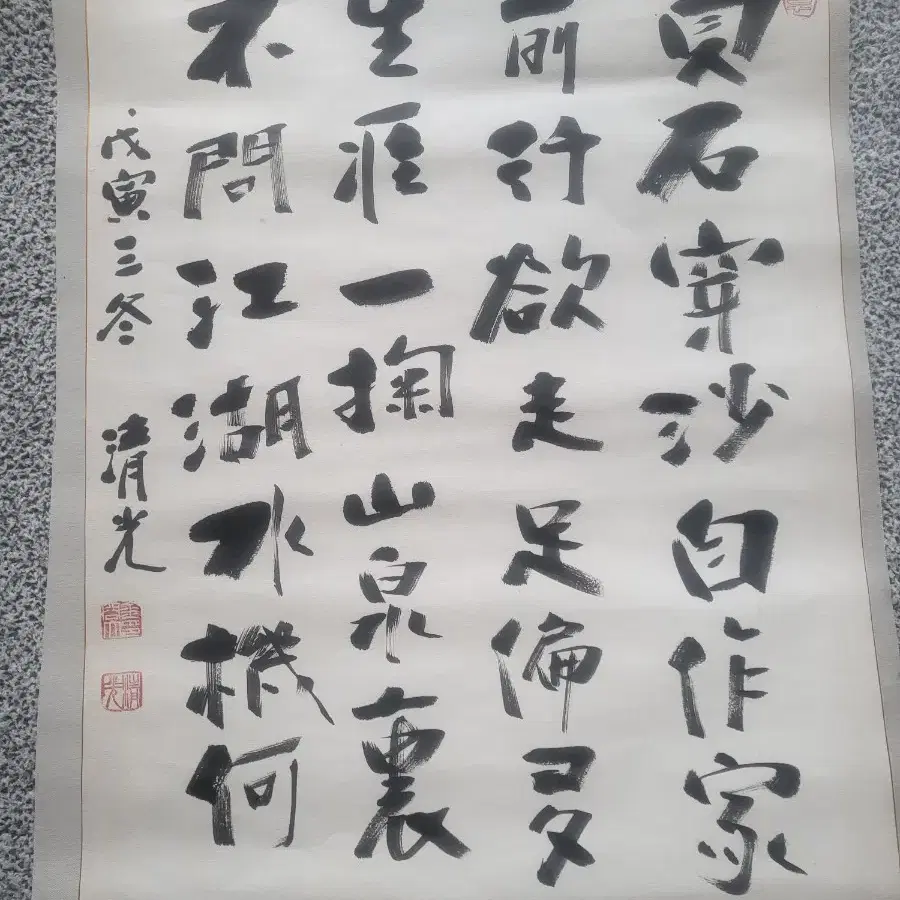 負石穿沙自作家
前行欲走足偏多
生涯一掬山泉裏
不問江湖水機何
戊寅三冬 清光